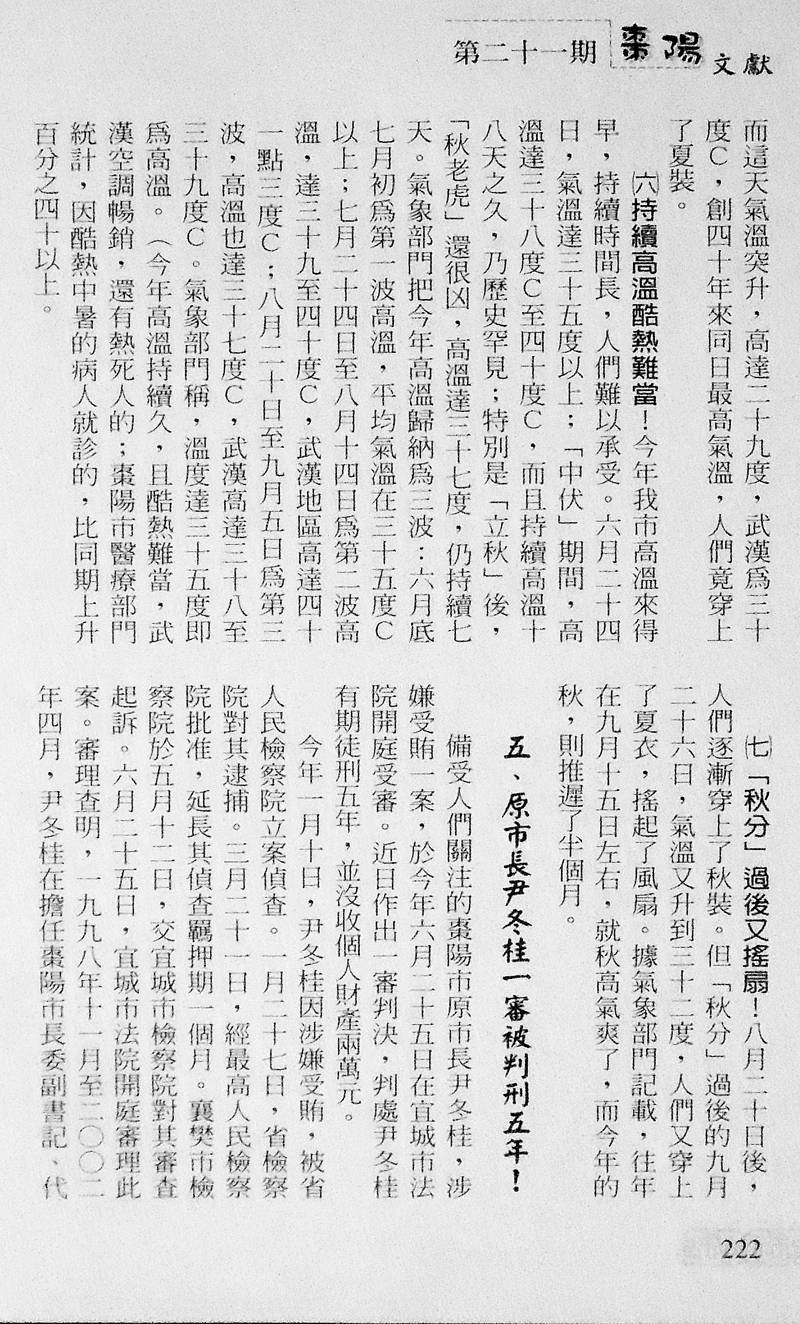 第二十一期 棗陽文獻
而這天氣溫突升，高達二十九度，武漢爲三十
度C，創四十年來同日最高氣溫，人們竟穿上
了夏裝。
㈥持續高溫酷熱難當！今年我市高溫來得
早，持續時間長，人們難以承受。六月二十四
日，氣溫達三十五度以上；「中伏」期間，高
溫達三十八度C至四十度C，而且持續高溫十
八天之久，乃歷史罕見；特別是「立秋」後，
「秋老虎」還很凶，高溫達三十七度，仍持續七
天。氣象部門把今年高溫歸納爲三波：六月底
七月初爲第一波高溫，平均氣溫在三十五度C
以上；七月二十四日至八月十四日爲第二波高
溫，達三十九至四十度C，武漢地區高達四十
一點三度C；八月二十日至九月五日爲第三
波，高溫也達三十七度C，武漢高達三十八至
三十九度C。氣象部門稱，溫度達三十五度即
爲高溫。（今年高溫持續久，且酷熱難當，武
漢空調暢銷，還有熱死人的；棗陽市醫療部門
統計，因酷熱中暑的病人就診的，比同期上升
百分之四十以上。
㈦「秋分」過後又搖扇！八月二十日後，
人們逐漸穿上了秋裝。但「秋分」過後的九月
二十六日，氣溫又升到三十二度，人們又穿上
了夏衣，搖起了風扇。據氣象部門記載，往年
在九月十五日左右，就秋高氣爽了，而今年的
秋，則推遲了半個月。
五、原市長尹冬桂一審被判刑五年！
備受人們關注的棗陽市原市長尹冬桂，涉
嫌受賄一案，於今年六月二十五日在宜城市法
院開庭受審。近日作出一審判決，判處尹冬桂
有期徒刑五年，並沒收個人財產兩萬元。
今年一月十日，尹冬桂因涉嫌受賄，被省
人民檢察院立案偵查。一月二十七日，省檢察
院對其逮捕。三月二十一日，經最高人民檢察
院批准，延長其偵查羈押期一個月。襄樊市檢
察院於五月十二日，交宜城市檢察院對其審查
起訴。六月二十五日，宜城市法院開庭審理此
案。審理查明，一九九八年十一月至二〇〇二
年四月，尹冬桂在擔任棗陽市長委副書記、代
222